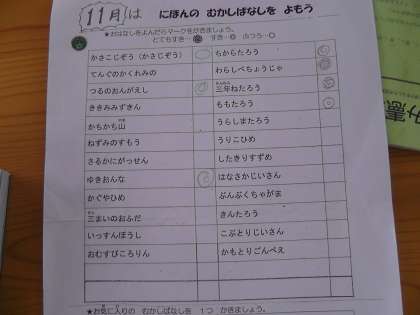 11月は にほんの むかしばなしを よもう
★おはなしをよんだらマークをかきましょう。
とてもすき… すき…◎ ふつう…○
かさこじぞう（かさじぞう） ちからたろう
てんぐのかくれみの わらしべちょうじゃ
つるのおんがえし 三年ねたろう
ききみみずきん ももたろう
かちかち山 うらしまたろう
ねずみのすもう うりこひめ
さるかにがっせん したきりすずめ
ゆきおんな はなさかじいさん
かぐやひめ ぶんぶくちゃがま
三まいのおふだ きんたろう
いっすんぼうし こぶとりじいさん
おむすびころりん かもとりごんべえ
★お気に入りの むかしばなしを 1つ かきましょう。